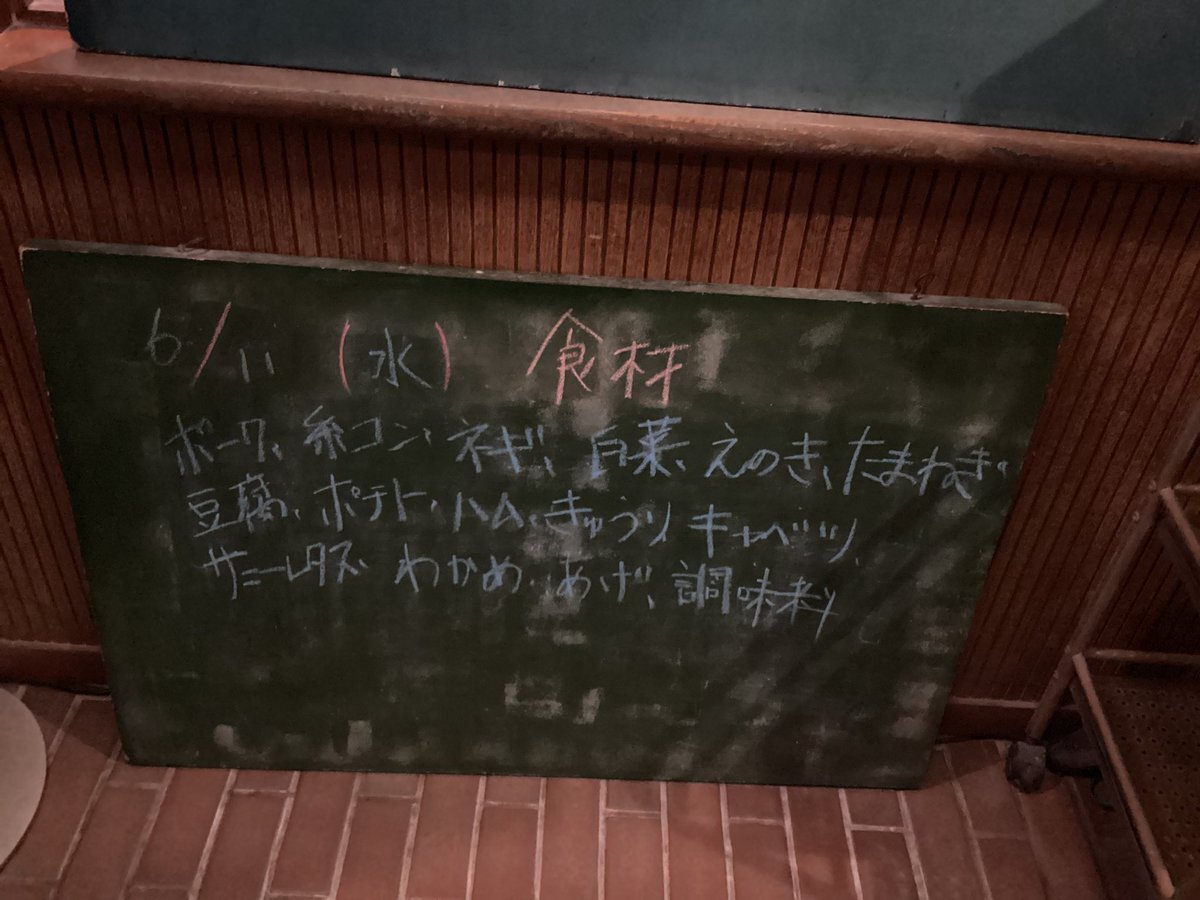 6/11 (水) 食材
ポーク、糸コン、ネギ、白菜、えのき、たまねぎ、
豆腐、ポテト、ハム、きゅうり キャベツ、
サニーレタス、わかめ、あげ、調味料